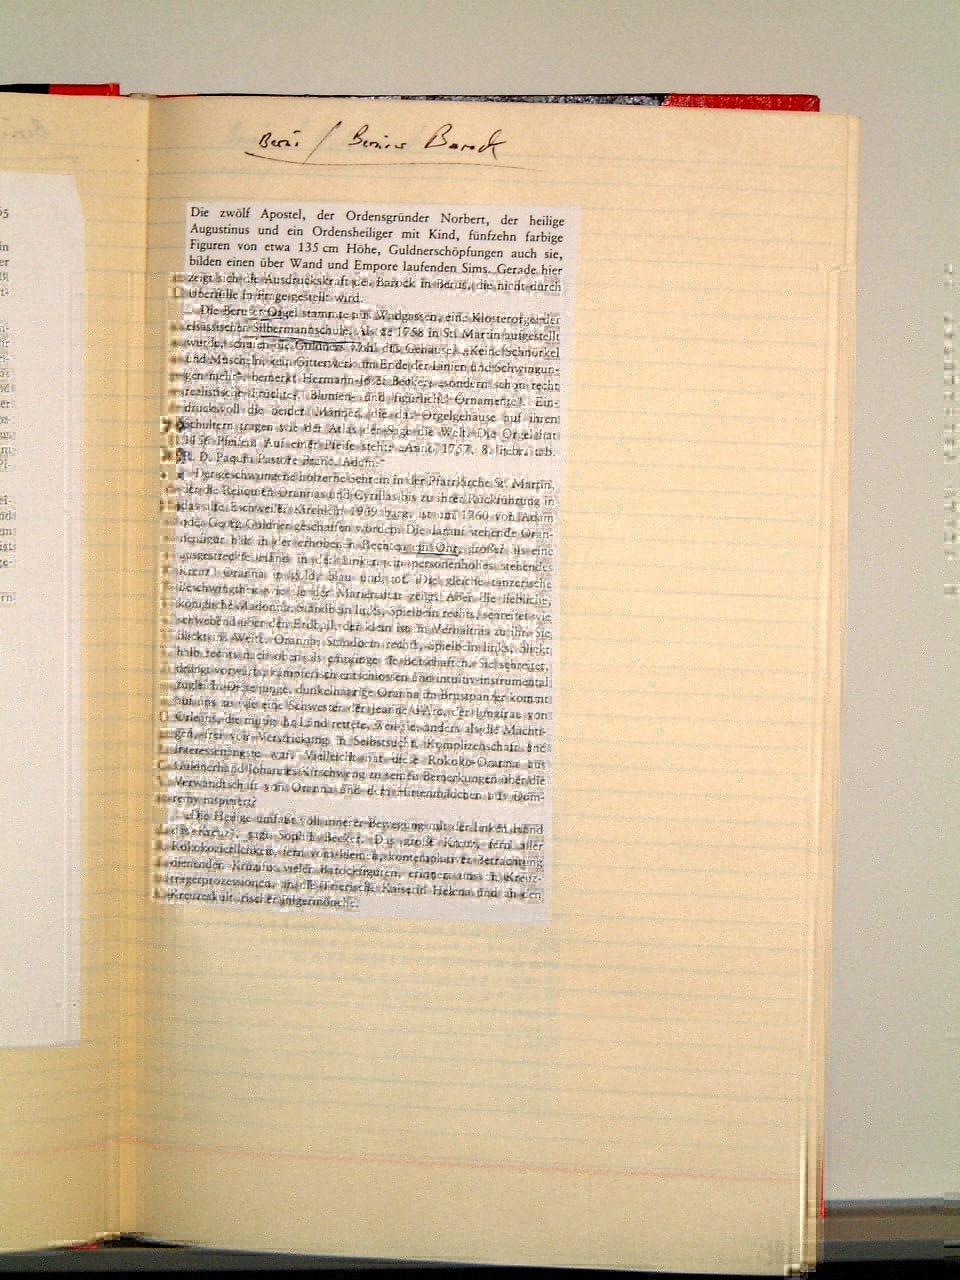 Berus / Beruser Barock
Die zwölf Apostel, der Ordensgründer Norbert, der heilige
Augustinus und ein Ordensheiliger mit Kind, fünfzehn farbige
Figuren von etwa 135 cm Höhe, Guldnerschöpfungen auch sie,
bilden einen über Wand und Empore laufenden Sims. Gerade hier
zeigt sich die Ausdruckskraft des Barock in Berus, die nicht durch
Überfülle in Frage gestellt wird.
Die Beruser Orgel stammt aus Wadgassen, eine Klosterorgel der
elsässischen Silbermannschule. Als sie 1758 in St. Martin aufgestellt
wurde, schufen die Guldners wohl das Gehäuse. «Keine Schnörkel
und Muscheln, kein Gitterwerk am Ende der Linien und Schwingun-
gen mehr», bemerkt Hermann-Josef Becker, «sondern schon recht
realistische Früchte, Blumen- und figürliche Ornamente». Ein-
drucksvoll die beiden Männer, die das Orgelgehäuse auf ihren
Schultern tragen wie der Atlas der Sage die Welt. Die Orgel hat
1456 Pfeifen. Auf einer Pfeife steht: «Anno 1757, 8.
R. D. Paquin Pastore
Der geschwungene hölzerne Schrein in der Pfarrkirche St. Martin,
der die Reliquien Orannas und Cyrillas bis zu ihrer Rückführung in
das alte Eschweiler Kirchlein 1969 barg, ist um 1760 von Adam
oder Georg Guldner geschaffen worden. Die darauf stehende Oran-
nenfigur hält in der erhobenen Rechten ein Ohr, größer als eine
ausgestreckte Hand, in der Linken ein personenhohes stehendes
Kreuz. Oranna in gold, blau und rot. Die gleiche tänzerische
Beschwingtheit wie sie der Marienaltar zeigt. Aber die liebliche,
königliche Madonna, Standbein links, Spielbein rechts, schreitet wie
schwebend über den Erdball, der klein ist im Verhältnis zu ihr. Sie
blickt ins Weite. Oranna, Standbein rechts, Spielbein links, blickt
halb rechts nach oben als empfinge sie Botschaften. Sie schreitet,
drängt vorwärts, kämpferisch entschlossen und intuitiv-instrumental
zugleich. Diese junge, dunkelhaarige Oranna im Brustpanzer kommt
auf uns zu wie eine Schwester der Jeanne d'Arc, der Jungfrau von
Orleans, die mutig ihr Land rettete, weil sie, anders als die Mächti-
gen, frei von Verstrickung in Selbstsucht, Komplizenschaft und
Interessenängste war. Vielleicht hat diese Rokoko-Oranna aus
Guldnerhand Johannes Kirschweng zu seinen Bemerkungen über die
Verwandtschaft von Oranna und dem Hirtenmädchen aus Dom-
remy inspiriert?
«Die Heilige umfaßt voll innerer Bewegung mit der linken Hand
das Kreuz», sagt Sophie Becker. Das große Kreuz, fern aller
Rokokozierlichkeit, fern vom kleinen, kontemplativer Betrachtung
dienenden Kruzifix vieler Barockfiguren, erinnert uns an Kreuz-
trägerprozessionen, an die Trierische Kaiserin Helena und an den
Kreuzeskult irischer Pilgermönche.